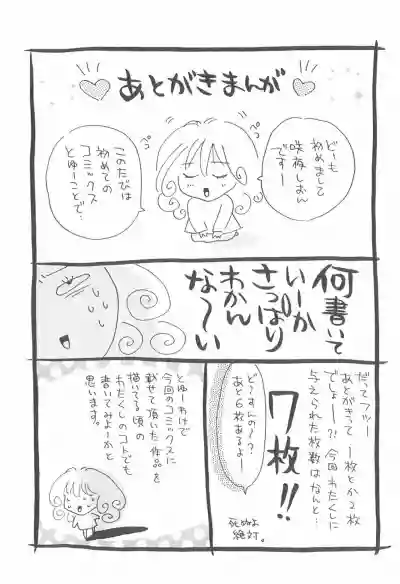 あとがきまんが
どーも
初めまして
咲夜しおん
ですー
ペコ
ペコ
このたびは
初めての
コミックス
とゆーことで…
何書いて
いーか
さっぱり
わかん
な～い
だってフツー
あとがきって一枚とか2枚
でしょー?!今回わたくしに
与えられた枚数はなんと…
7枚!!
どーすんの!?
あと6枚あるよー
死ぬよ
絶対。
とゆーわけで
今回のコミックスに
載せて頂いた作品を
描いてる頃の
わたくしのコトでも
書いてみよーかと
思います。